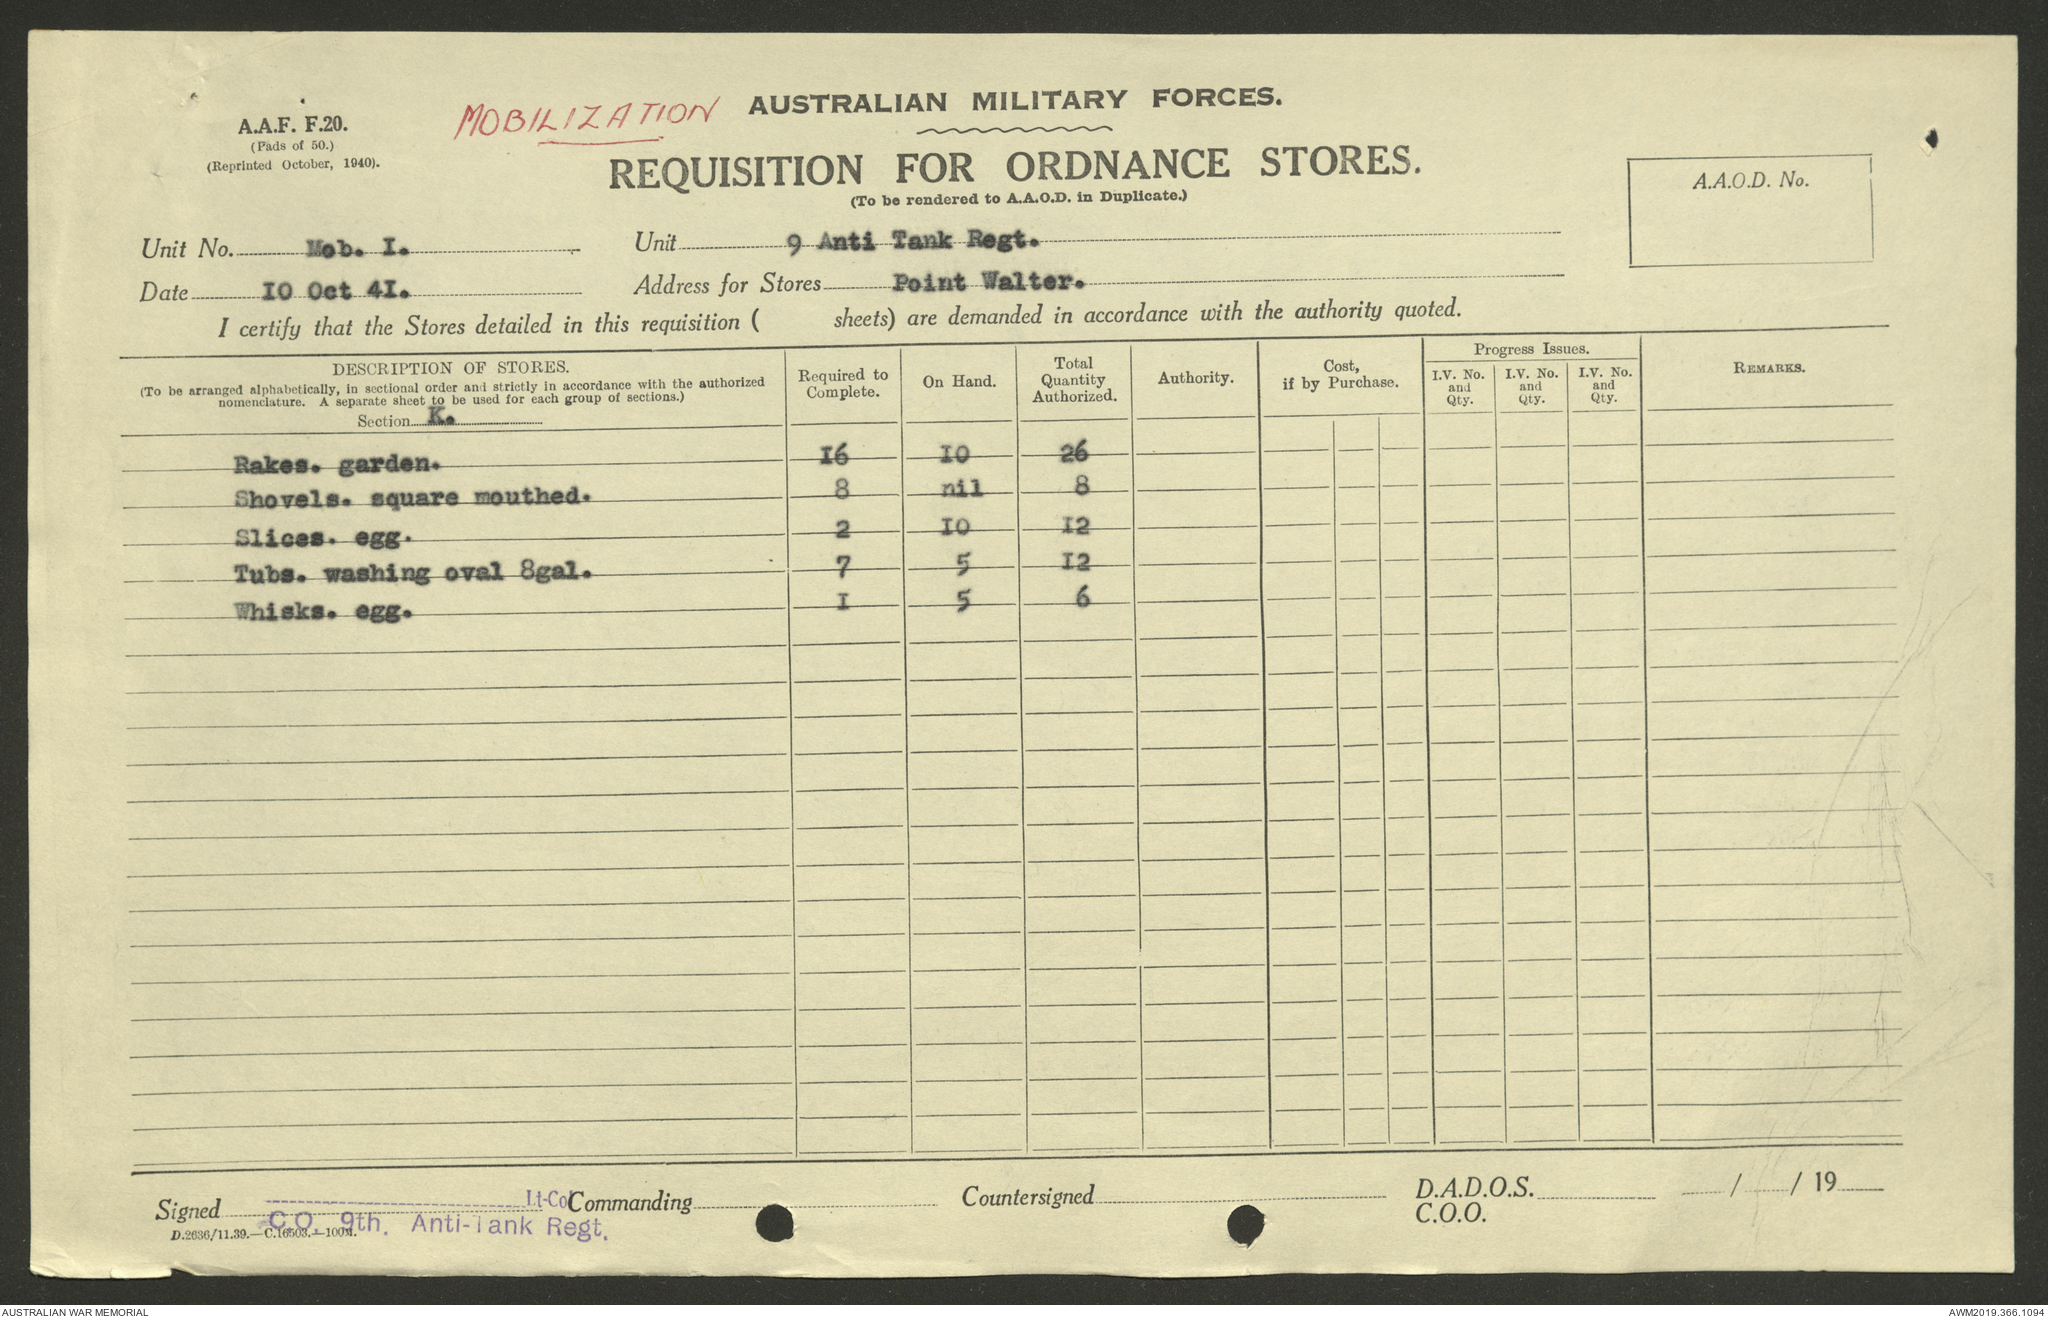 A.A.F. F.20.
(Pads of 50.)
(Reprinted October, 1940).
MOBILIZATION
AUSTRALIAN MILITARY FORCES.
REQUISITION FOR ORDNANCE STORES.
(To be rendered to A.A.O.D. in Duplicate.)
A.A.O.D. No.
Unit No. Mob. I. Unit 9 Anti Tank Regt.
Date IO Oct 4I. Address for Stores Point Walter.
I certify that the Stores detailed in this requisition ( sheets) are demanded in accordance with the authority quoted.
DESCRIPTION OF STORES.
(To be arranged alphabetically, in sectional order and strictly in accordance with the authorized
nomenclature. A separate sheet to be used for each group of sections.)
Section K.
Required to
Complete.
On Hand.
Total
Quantity
Authorized.
Authority.
Cost,
if by Purchase.
Progress Issues.
I.V. No.
and
Qty.
I.V. No.
and
Qty.
I.V. No.
and
Qty.
REMARKS.
Rakes. garden. I6 IO 26
Shovels. square mouthed. 8 nil 8
Slices. egg. 2 IO I2
Tubs. washing oval 8gal. 7 5 I2
Whisks. egg. I 5 6
Signed Lt-Col Commanding Countersigned D.A.D.O.S. / / 19
C.O.O.
C.O. 9th. Anti-Tank Regt.
D.2636/11.39.—C.16503.—100M.
AUSTRALIAN WAR MEMORIAL
AWM2019.366.1094